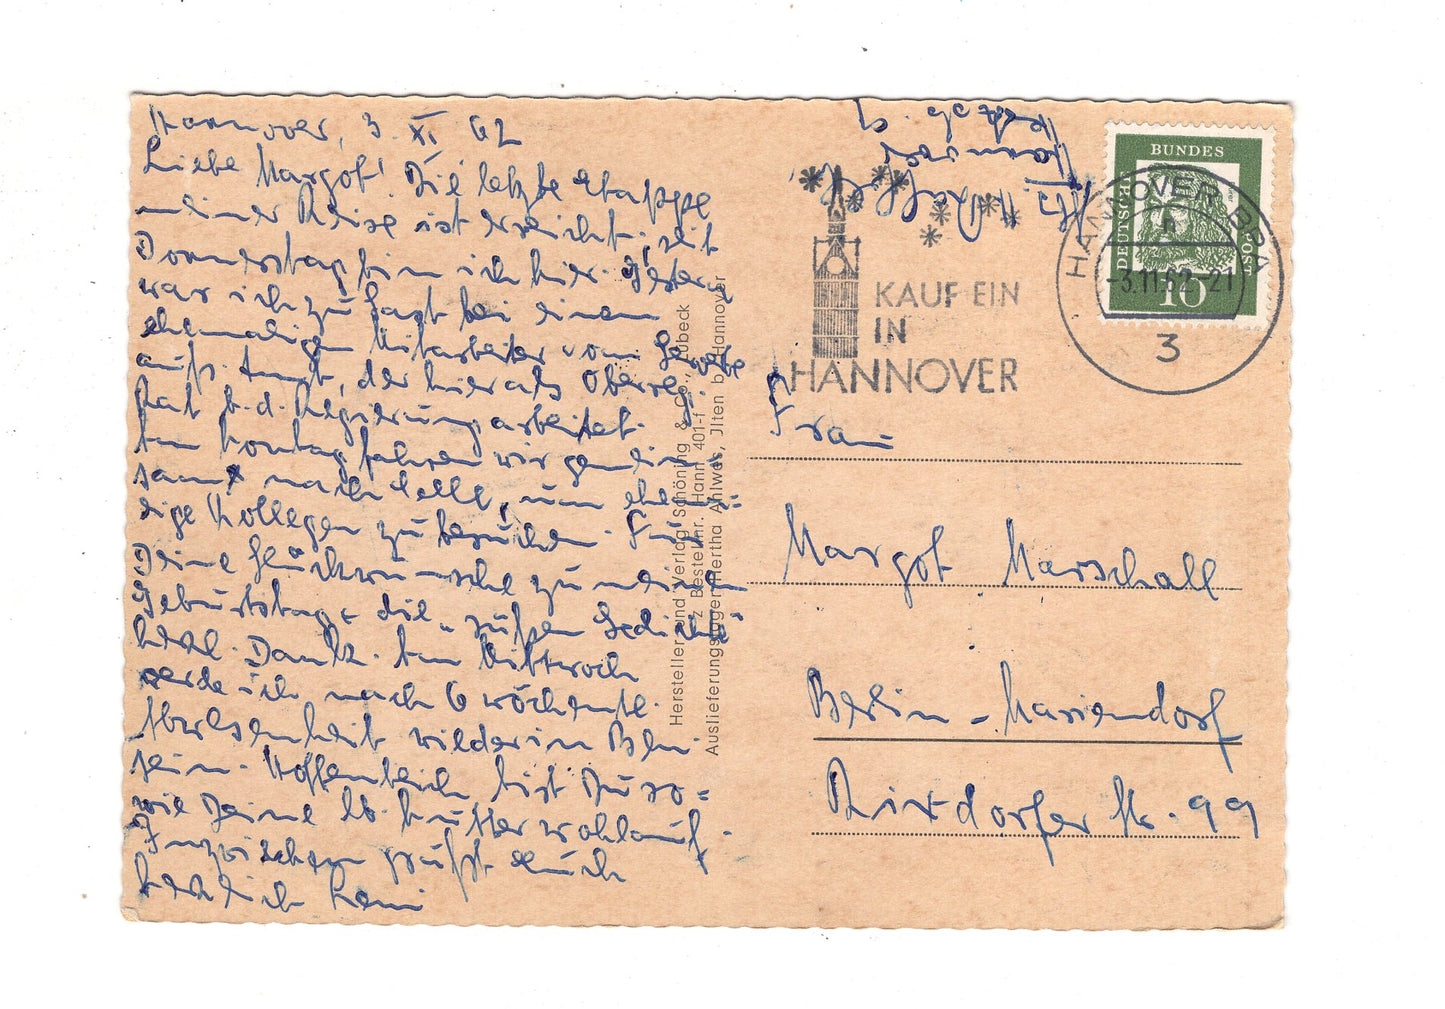 Hannover, 3. XI. 62
Liebe Margot! Die letzte Etappe
meiner Reise ist erreicht, seit
Donnerstag bin ich hier. Gestern
war ich zu Gast bei einem
ehemaligen Mitarbeiter vom Gewerbe
aufs. Amt, der hier als Oberreg.
Rat b. d. Regierung arbeitet.
Am Montag fahren wir gemein-
sam nach Celle, um ehema=
lige Kollegen zu besuchen. Für
Deine Glückwünsche zu meinem
Geburtstag u. die süßen Gedichte
herzl. Dank. Am Mittwoch
werde ich nach 6 wöchentl.
Abwesenheit wieder in Bln.
sein. Hoffentlich bist Du so=
wie Deine lb. Mutter wohlauf.
Inzwischen grüßt Euch
herzlich
Hannover
BUNDES
DEUTSCHE
POST
10
HANNOVER BPA
h
-3.11.62-21
3
KAUF EIN
IN
HANNOVER
Hersteller und Verlag Schöning & Co., Lübeck
z Bestellnr. Hann 401-f
Auslieferungslager Hertha Ahlwes, Jlten b. Hannover
Frau
Margot Marschall
Berlin-Mariendorf
Rixdorfer Str. 99